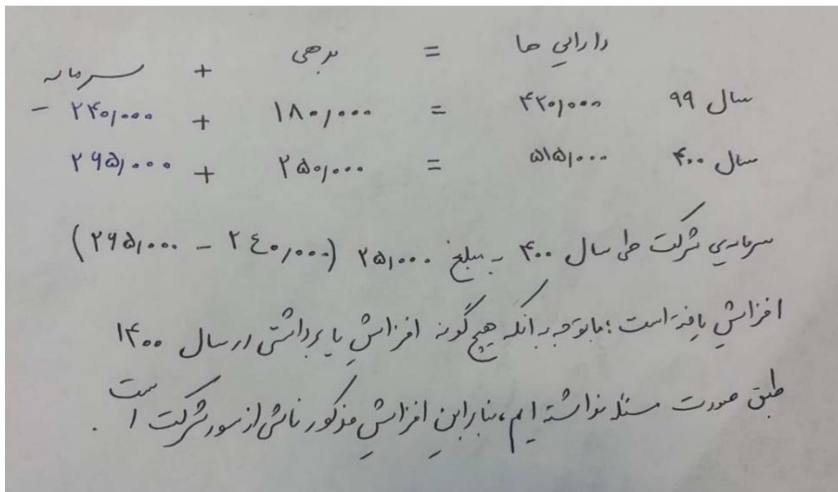 دارایی ها = بدهی + سرمایه
سال ۹۹ ۴۲۰,۰۰۰ = ۱۸۰,۰۰۰ + ۲۴۰,۰۰۰ -
سال ۴۰۰ ۵۱۵,۰۰۰ = ۲۵۰,۰۰۰ + ۲۶۵,۰۰۰
سرمایه‌ی شرکت طی سال ۴۰۰ به مبلغ ۲۵,۰۰۰ (۲۶۵,۰۰۰ - ۲۴۰,۰۰۰)
افزایش یافته است؛ با توجه به آنکه هیچ گونه افزایش یا برداشتی در سال ۱۴۰۰
طبق صورت مسئله نداشته ایم، بنابراین افزایش مذکور ناشی از سود شرکت است.